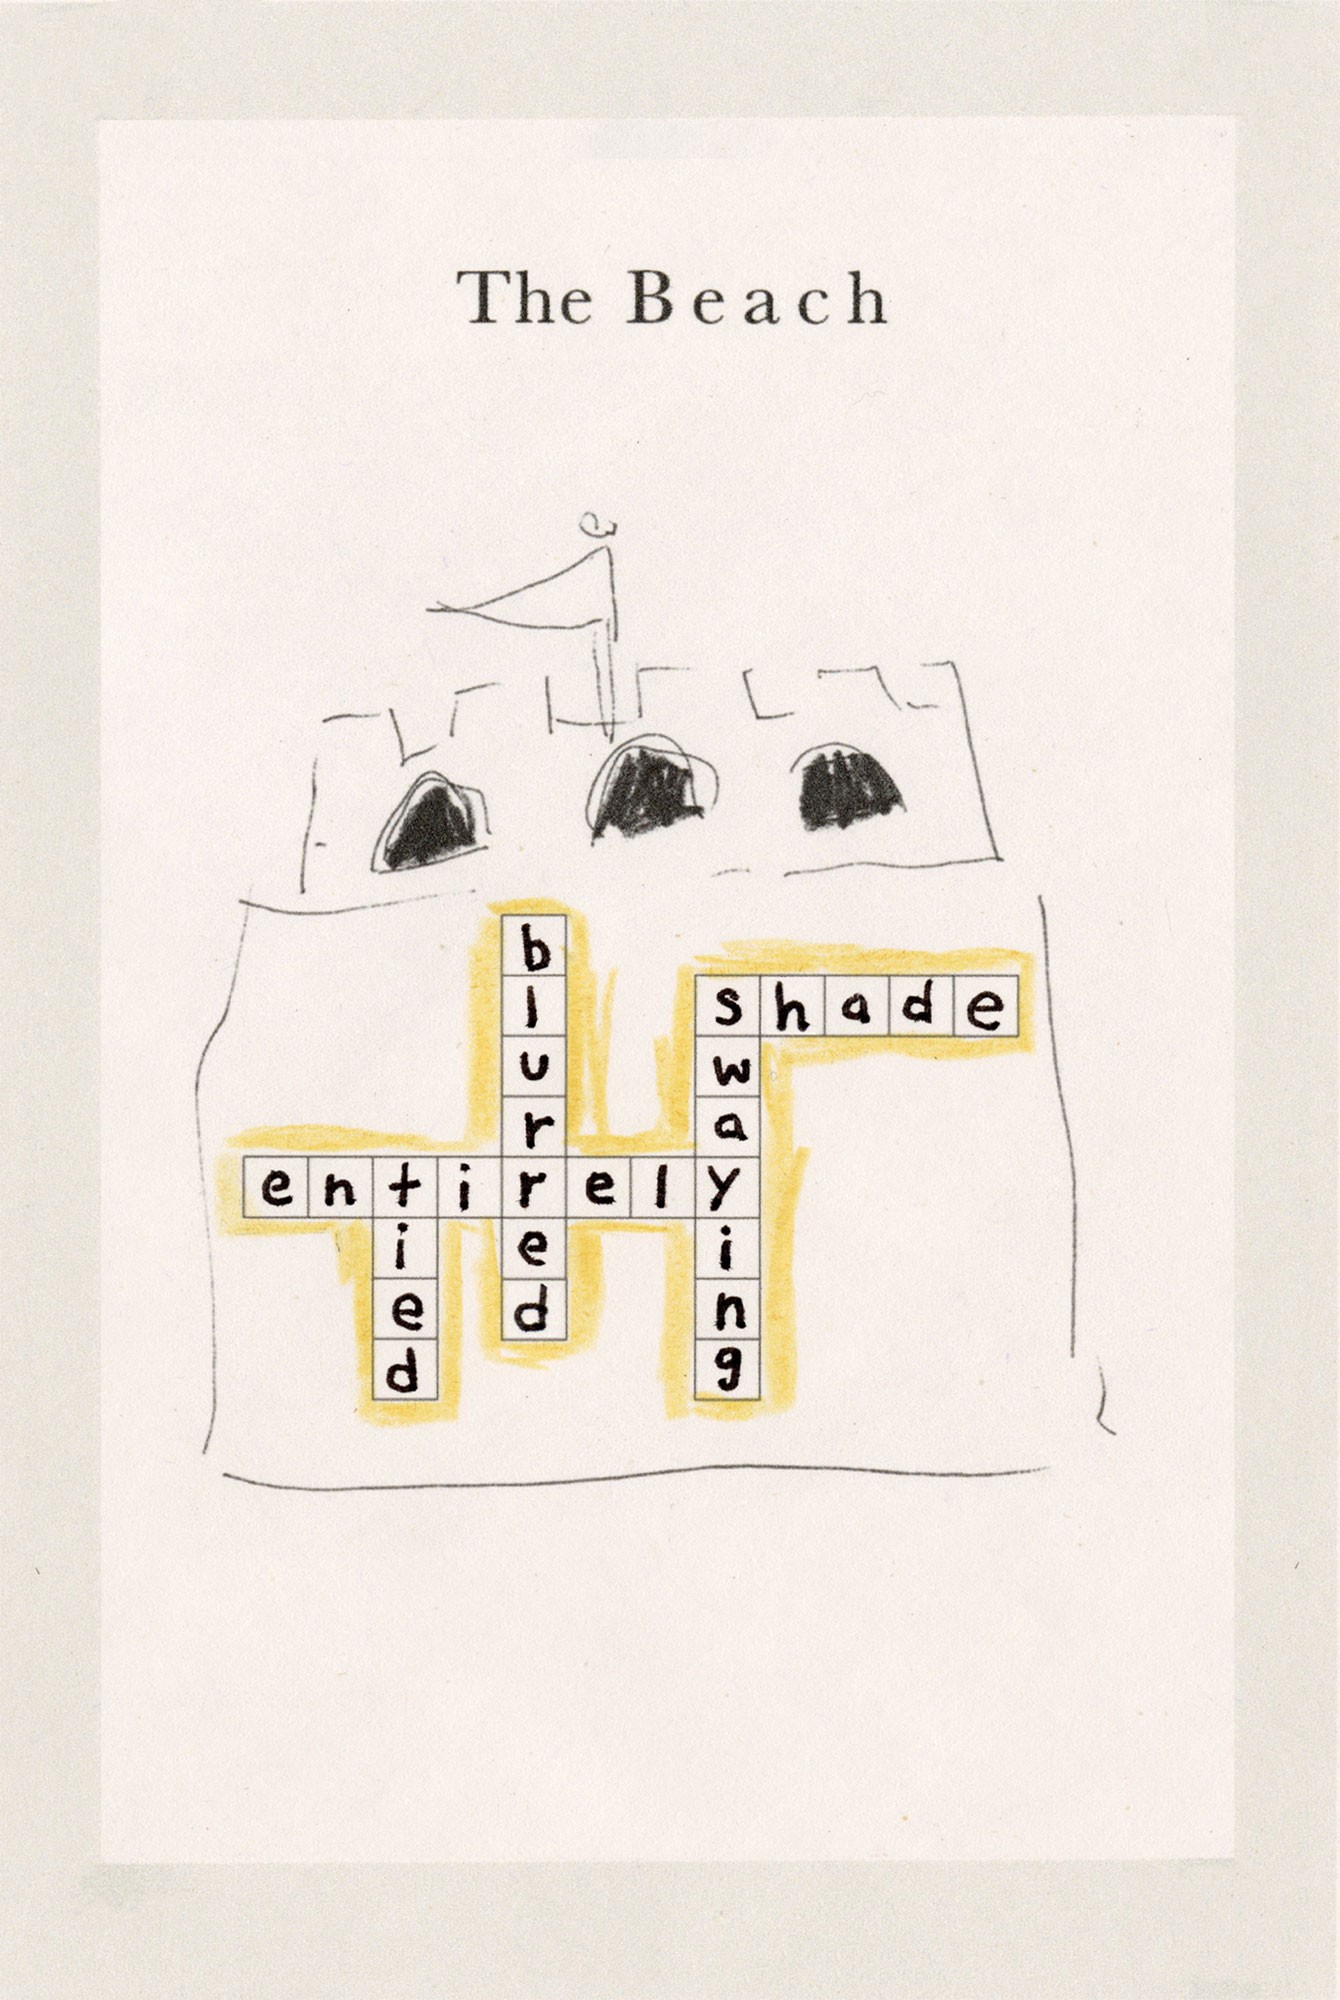 The Beach
blurred
shade
swaying
entirely
tied